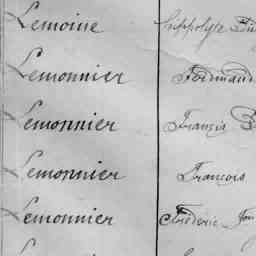 Lemoine Hippolyte
Lemonnier Fernand
Lemonnier Francis
Lemonnier François
Lemonnier Frédéric